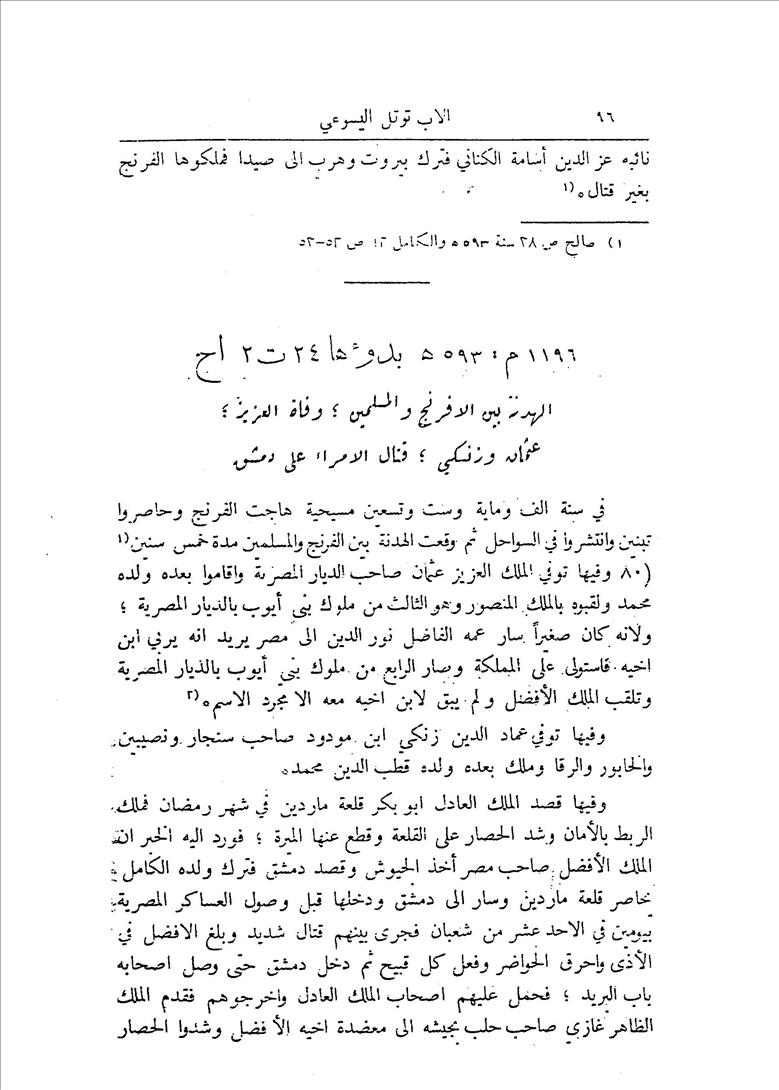 ٩٦ الاب توتل اليسوعي
نائبه عز الدين أسامة الكناني فترك بيروت وهرب الى صيدا فملكوها الفرنج
بغير قتال٠(١
١) صالح ص ٢٨ سنة ٥٩٣ ھ والكامل ١٢ ص ٥٢–٥٣
١١٩٦ م : ٥٩٣ ھ بدوٴها ٢٤ ت ٢ أج
الهدنة بين الافرنج والمسلمين ؛ وفاة العزيز ؛
عثمان وزنكي ؛ قتال الامراء على دمشق
في سنة الف وماية وست وتسعين مسيحية هاجت الفرنج وحاصروا
تبنين وانتشروا في السواحل ثم وقعت الهدنة بين الفرنج والمسلمين مدة خمس سنين(١
(٨٠ وفيها توفي الملك العزيز عثمان صاحب الديار المصرية واقاموا بعده ولده
محمد ولقبوه بالملك المنصور وهو الثالث من ملوك بني أيوب بالديار المصرية ؛
ولانه كان صغيراً سار عمه الفاضل نور الدين الى مصر يريد انه يربي ابن
اخيه فاستولى على المملكة وصار الرابع من ملوك بني أيوب بالديار المصرية
وتلقب الملك الأفضل ولم يبق لابن اخيه معه الا مجرد الاسم٠(٢
وفيها توفي عماد الدين زنكي ابن مودود صاحب سنجار ونصيبين
والخابور والرقا وملك بعده ولده قطب الدين محمد٠
وفيها قصد الملك العادل ابو بكر قلعة ماردين في شهر رمضان فملك
الربط بالأمان وشد الحصار على القلعة وقطع عنها الميرة ؛ فورد اليه الخبر ان
الملك الأفضل صاحب مصر أخذ الجيوش وقصد دمشق فترك ولده الكامل
يحاصر قلعة ماردين وسار الى دمشق ودخلها قبل وصول العساكر المصرية
بيومين في الاحد عشر من شعبان فجرى بينهم قتال شديد وبلغ الافضل في
الأذى واحرق الحواضر وفعل كل قبيح ثم دخل دمشق حتى وصل اصحابه
باب البريد ؛ فحمل عليهم اصحاب الملك العادل واخرجوهم فقدم الملك
الظاهر غازي صاحب حلب بجيشه الى معضدة اخيه الأفضل وشدوا الحصار